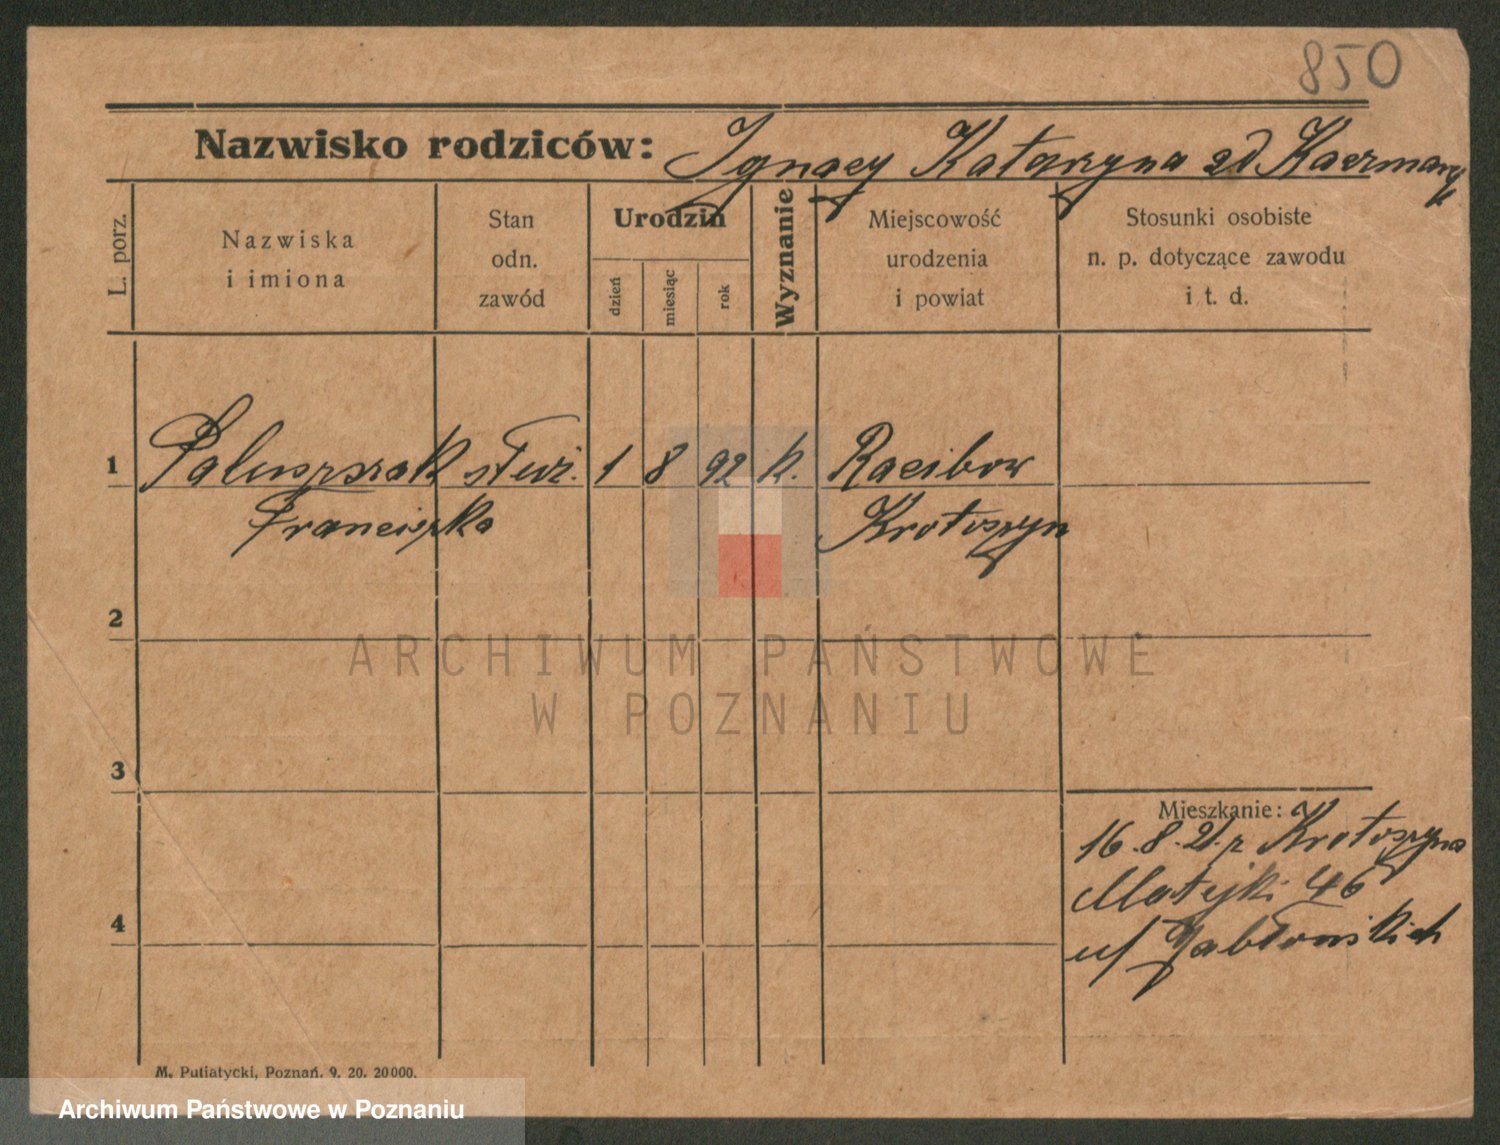 850
Nazwisko rodziców: Ignacy Katarzyna zd Kaczmarek
L. porz.
Nazwiska
i imiona
Stan
odn.
zawód
Urodzin
dzień
miesiąc
rok
Wyznanie
Miejscowość
urodzenia
i powiat
Stosunki osobiste
n. p. dotyczące zawodu
i t. d.
1 Paluszszak służ. 1 8 92 k. Racibow
Franciszka Krotoszyn
2
ARCHIWUM PAŃSTWOWE
W POZNANIU
3
Mieszkanie:
16.8.21. z Krotoszyna
Matejki 46
4
u/ Jabłońskich
M. Putiatycki, Poznań. 9. 20. 20000.
Archiwum Państwowe w Poznaniu